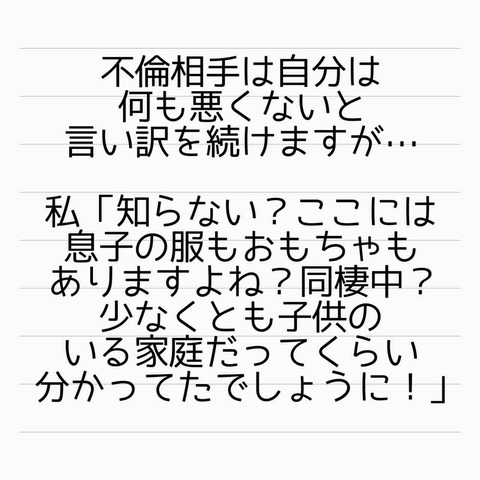 不倫相手は自分は
何も悪くないと
言い訳を続けますが…
私「知らない？ここには
息子の服もおもちゃも
ありますよね？同棲中？
少なくとも子供の
いる家庭だってくらい
分かってたでしょうに！」